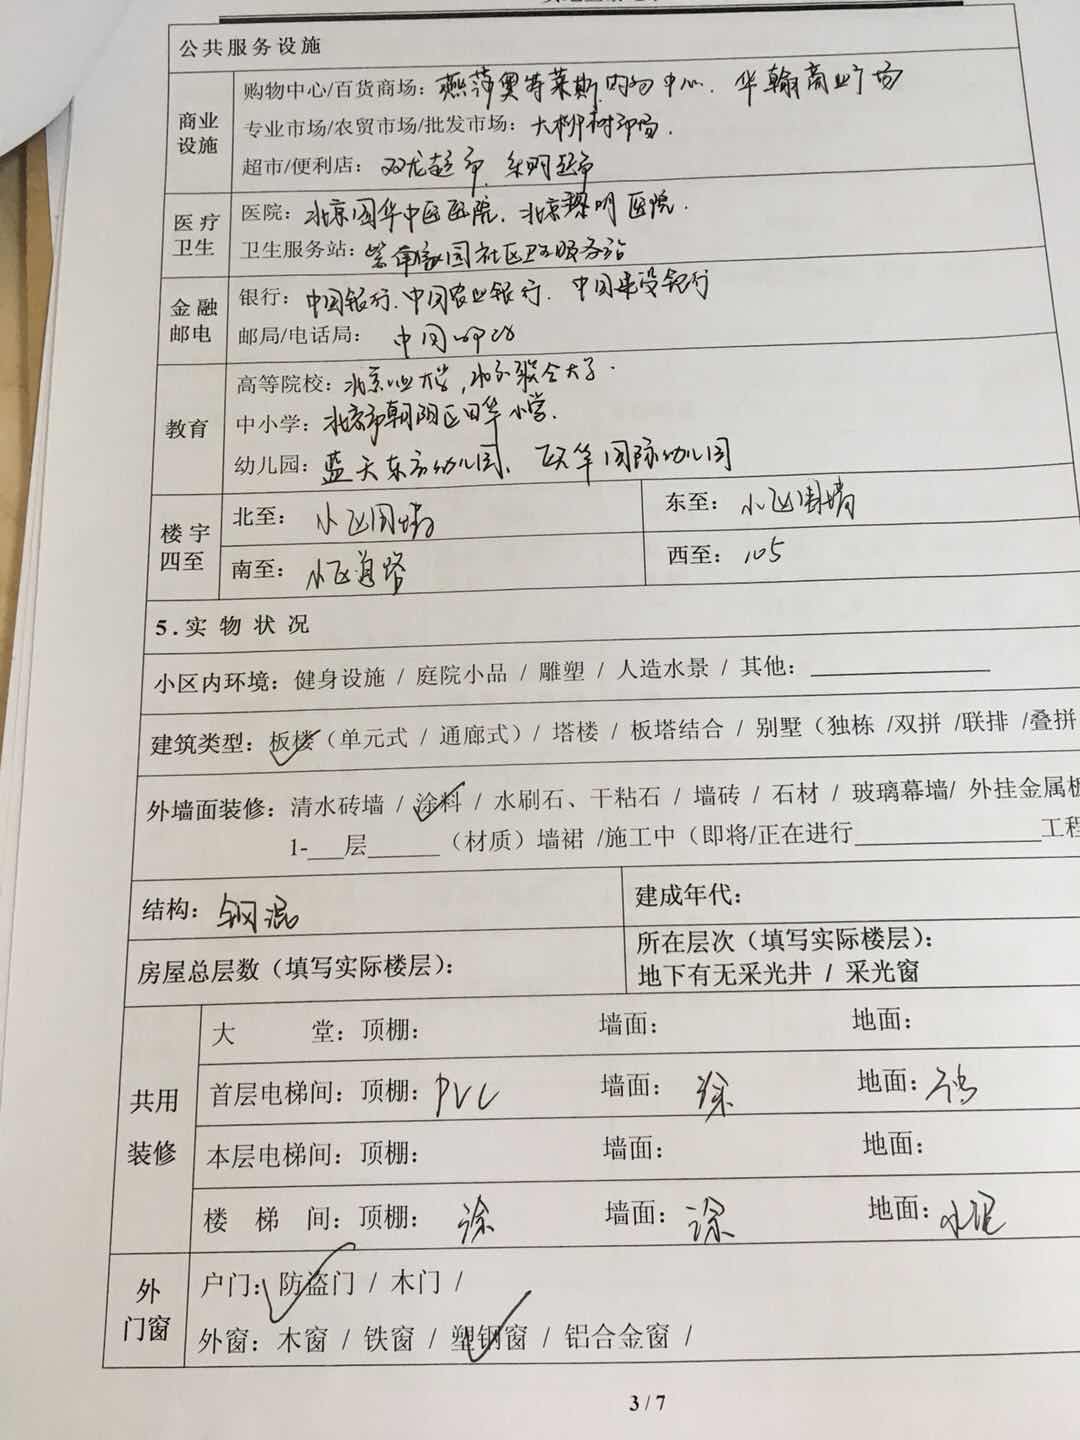 公共服务设施
商业设施
购物中心/百货商场：燕莎奥特莱斯购物中心、华翰商业广场
专业市场/农贸市场/批发市场：大柳树市场.
超市/便利店：双龙超市、东明超市
医疗卫生
医院：北京国华中医医院、北京黎明医院.
卫生服务站：紫南家园社区卫生服务站
金融邮电
银行：中国银行、中国农业银行、中国建设银行
邮局/电话局：中国邮政
教育
高等院校：北京工业大学，北京联合大学.
中小学：北京市朝阳区日华小学.
幼儿园：蓝天东方幼儿园、 华国际幼儿园
楼宇四至
北至：小区围墙 东至：小区围墙
南至：小区道路 西至：105
5.实物状况
小区内环境：健身设施 / 庭院小品 / 雕塑 / 人造水景 / 其他：
建筑类型：板楼（单元式 / 通廊式）/ 塔楼 / 板塔结合 / 别墅（独栋 /双拼 /联排 /叠拼
外墙面装修：清水砖墙 / 涂料 / 水刷石、干粘石 / 墙砖 / 石材 / 玻璃幕墙/ 外挂金属板
1-___层______（材质）墙裙 /施工中（即将/正在进行________________工程
结构：钢混 建成年代：
房屋总层数（填写实际楼层）： 所在层次（填写实际楼层）：
地下有无采光井 / 采光窗
共用装修
大 堂：顶棚： 墙面： 地面：
首层电梯间：顶棚：PVC 墙面：涂 地面：
本层电梯间：顶棚： 墙面： 地面：
楼 梯 间：顶棚：涂 墙面：涂 地面：水泥
外门窗
户门：防盗门 / 木门 /
外窗：木窗 / 铁窗 / 塑钢窗 / 铝合金窗 /
3 / 7